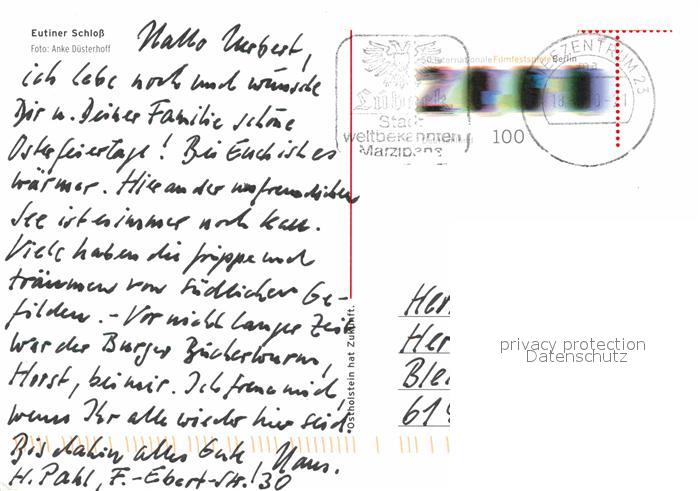 Eutiner Schloß
Foto: Anke Düsterhoff
Hallo Herbert,
ich lebe noch und wünsche
Dir u. Deiner Familie schöne
Osterfeiertage! Bei Euch ist es
wärmer. Hier an der unfreundlichen
See ist es immer noch kalt.
Viele haben die Grippe und
träumen von südlichen Ge-
filden. - Vor nicht langer Zeit
war der Burger Bücherwurm,
Horst, bei mir. Ich freue mich,
wenn Ihr alle wieder hier seid.
Bis dahin alles Gute Hans.
H. Pahl, F.-Ebert-Str. 30
50. Internationale Filmfestspiele Berlin
100
Lübeck
Stadt
weltbekannten
Marzipans
BRIEFZENTRUM 23
Ostholstein hat Zukunft.
Her
Her
Ble
61
privacy protection
Datenschutz